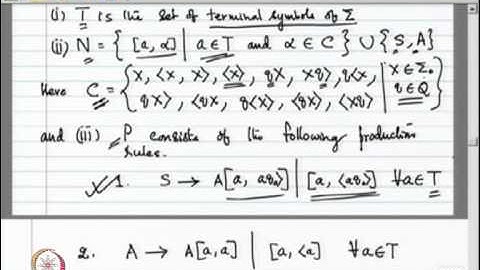 (i) T is the set of terminal symbols of Σ
(ii) N = { [a, α] | a∈T and α ∈ C } ∪ {S, A}
Here C = { x, <x, x>, <x>, qx, xq, q<x, | x∈Σ₀
qx>, <qx, q<x>, <qx>, <xq> | q∈Q }
and (iii) P consists of the following production
rules.
1. S → A[a, aq₀>] | [a, <aq₀>] ∀a∈T
2. A → A[a,a] | [a, <a] ∀a∈T